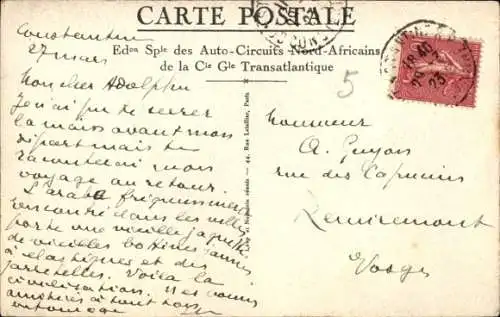 CARTE POSTALE
Edon Sple des Auto-Circuits Nord-Africains
de la Cie Gle Transatlantique
5
Constantine
27 mars
Mon cher Adolphe
Je n'ai pu te serrer
la main avant mon
départ mais te
raconterai mon
voyage au retour.
L'arabe fréquemment
rencontré dans les villes
porte une vieille jaquette
de vieilles bottines jaunes
à élastiques et des
Voilà la
civilisation. Mes
amitiés à tout
Monsieur
A. Guyon
rue des Capucins
Remiremont
Vosges